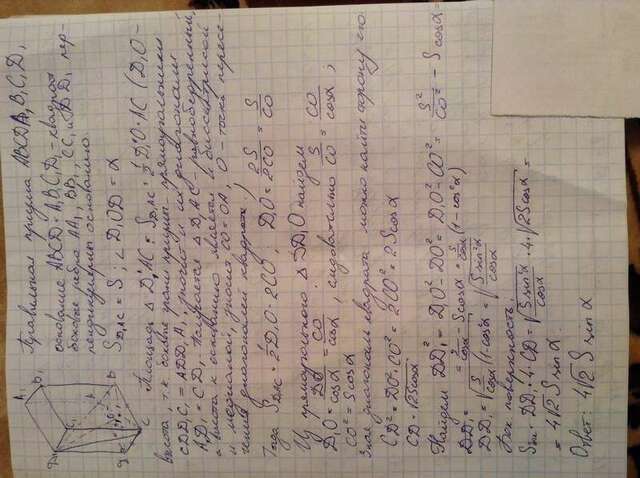 Правильная призма ABCDA₁B₁C₁D₁
основание ABCD и A₁B₁C₁D₁ – квадрат
боковые ребра AA₁, BB₁, CC₁ и DD₁ пер-
пендикулярны основанию
S D₁AC = S; ∠ D₁OD = α
Площадь Δ D₁AC = S D₁AC = ½ D₁O · AC (D₁O –
высота, т.к. боковые грани призмы – прямоугольники
CDD₁C₁ = ADD₁A₁, диагонали
AD₁ = CD₁. Получается Δ D₁AC – равнобедренный,
а высота к основанию является и биссектрисой
и медианой, значит CO = OA, O – точка пересе-
чения диагоналей квадрата)
Тогда S D₁AC = ½ D₁O · 2CO, D₁O = 2S/2CO = S/CO
Из прямоугольного Δ DD₁O найдем
D₁O = DO/cosα = CO/cosα, следовательно S/CO = CO/cosα;
CO² = S cosα
Зная диагональ квадрата можно найти сторону его
CD² = DO² + CO² = 2CO² = 2S cosα
CD = √2S cosα
Найдем DD₁² = D₁O² – DO² = D₁O² – CO² = S²/CO² – S cosα =
= S/cosα – S cosα = S/cosα (1 – cos²α)
DD₁ = √S/cosα (1 – cos²α) = √S sin²α/cosα
Бок. поверхность:
Sбок = DD₁ · 4 · CD = √S sin²α/cosα · 4 · √2S cosα =
= 4√2 S sin α
Ответ: 4√2 S sin α
A₁
B₁
C
B
A